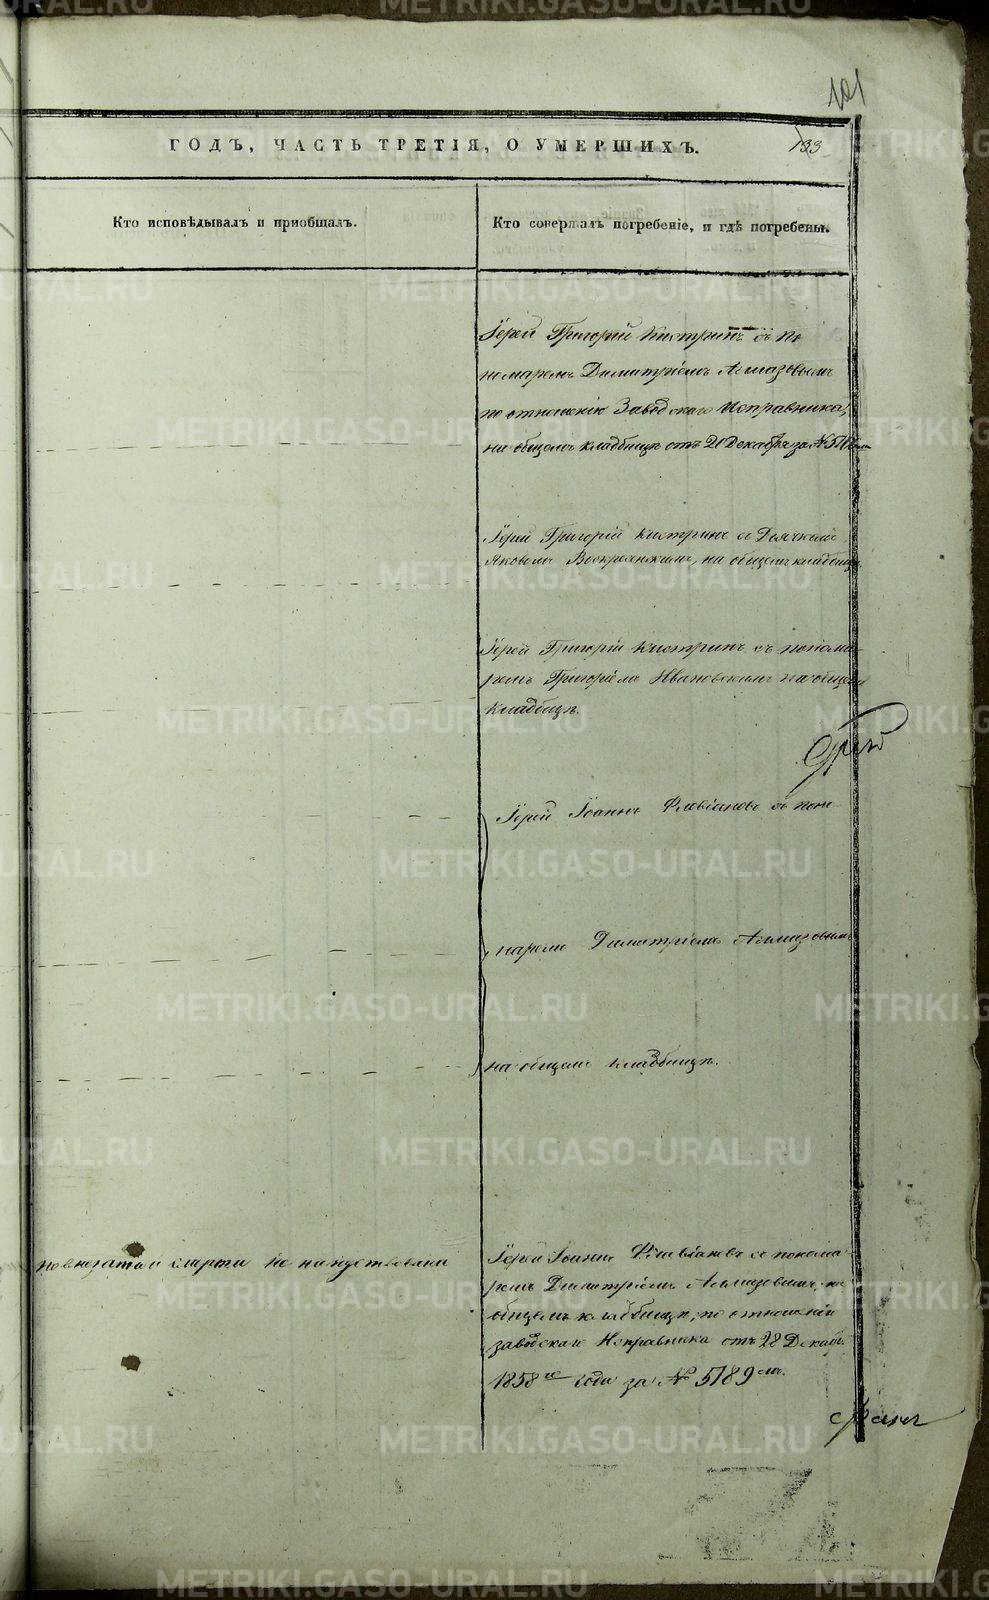 101
ГОДЪ, ЧАСТЬ ТРЕТІЯ, О УМЕРШИХЪ.
133
Кто исповѣдывалъ и пріобщалъ.
Кто совершалъ погребеніе, и гдѣ погребены.
Іерей Григорій Кистринъ съ по
номаремъ Димитріемъ Алмазовымъ
по отношенію Заводскаго Исправника,
на общемъ кладбищѣ отъ 21 Декабря за №
Іерей Григорій Кистринъ съ Дьячкомъ
Яковомъ на общемъ кладбищѣ
Іерей Григорій Кистринъ съ понома
ремъ Григоріемъ Ивановскимъ на общемъ
кладбищѣ.
Іерей Іоаннъ Флавіановъ съ поно
маремъ Димитріемъ Алмазовымъ
на общемъ кладбищѣ.
по внезапной смерти не напутствованъ
Іерей Іоаннъ Флавіановъ съ понома
ремъ Димитріемъ Алмазовымъ, на
общемъ кладбищѣ, по отношенію
заводскаго Исправника отъ 28 Декаб.
1858го года за № 5789мъ.
METRIKI.GASO-URAL.RU